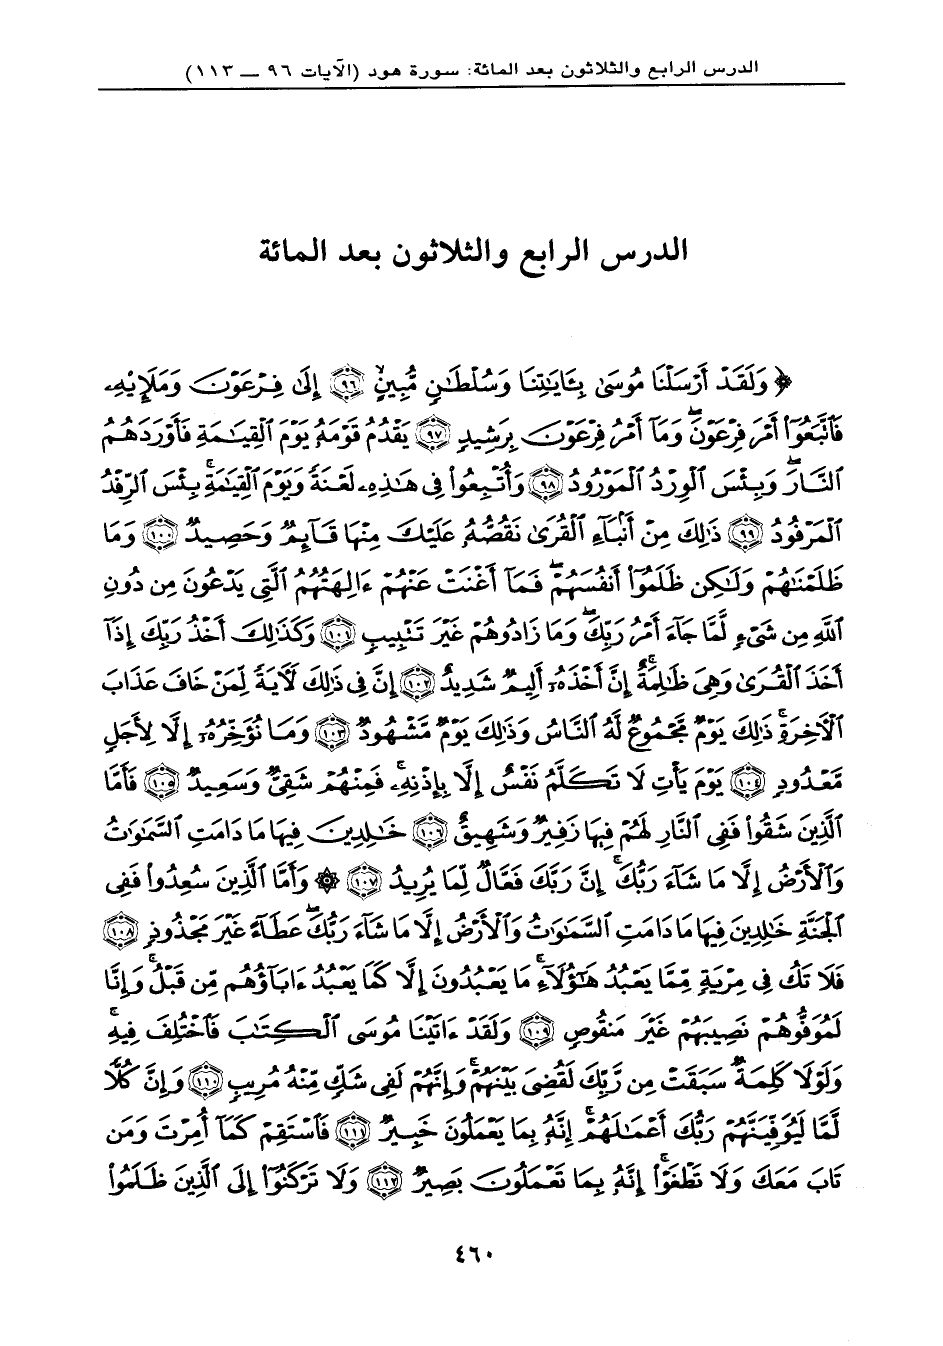 الدرس الرابع والثلاثون بعد المائة: سورة هود (الآيات ٩٦ — ١١٣)
الدرس الرابع والثلاثون بعد المائة
﴿ وَلَقَدْ أَرْسَلْنَا مُوسَىٰ بِـَٔايَـٰتِنَا وَسُلْطَـٰنٍ مُّبِينٍ ﴿٩٦﴾ إِلَىٰ فِرْعَوْنَ وَمَلَإِي۟هِۦ
فَٱتَّبَعُوٓا۟ أَمْرَ فِرْعَوْنَ ۖ وَمَآ أَمْرُ فِرْعَوْنَ بِرَشِيدٍ ﴿٩٧﴾ يَقْدُمُ قَوْمَهُۥ يَوْمَ ٱلْقِيَـٰمَةِ فَأَوْرَدَهُمُ
ٱلنَّارَ ۖ وَبِئْسَ ٱلْوِرْدُ ٱلْمَوْرُودُ ﴿٩٨﴾ وَأُتْبِعُوا۟ فِى هَـٰذِهِۦ لَعْنَةً وَيَوْمَ ٱلْقِيَـٰمَةِ ۚ بِئْسَ ٱلرِّفْدُ
ٱلْمَرْفُودُ ﴿٩٩﴾ ذَٰلِكَ مِنْ أَنۢبَآءِ ٱلْقُرَىٰ نَقُصُّهُۥ عَلَيْكَ ۖ مِنْهَا قَآئِمٌ وَحَصِيدٌ ﴿١٠٠﴾ وَمَا
ظَلَمْنَـٰهُمْ وَلَـٰكِن ظَلَمُوٓا۟ أَنفُسَهُمْ ۖ فَمَآ أَغْنَتْ عَنْهُمْ ءَالِهَتُهُمُ ٱلَّتِى يَدْعُونَ مِن دُونِ
ٱللَّهِ مِن شَىْءٍ لَّمَّا جَآءَ أَمْرُ رَبِّكَ ۖ وَمَا زَادُوهُمْ غَيْرَ تَتْبِيبٍ ﴿١٠١﴾ وَكَذَٰلِكَ أَخْذُ رَبِّكَ إِذَآ
أَخَذَ ٱلْقُرَىٰ وَهِىَ ظَـٰلِمَةٌ ۚ إِنَّ أَخْذَهُۥٓ أَلِيمٌ شَدِيدٌ ﴿١٠٢﴾ إِنَّ فِى ذَٰلِكَ لَـَٔايَةً لِّمَنْ خَافَ عَذَابَ
ٱلْـَٔاخِرَةِ ۚ ذَٰلِكَ يَوْمٌ مَّجْمُوعٌ لَّهُ ٱلنَّاسُ وَذَٰلِكَ يَوْمٌ مَّشْهُودٌ ﴿١٠٣﴾ وَمَا نُؤَخِّرُهُۥٓ إِلَّا لِأَجَلٍ
مَّعْدُودٍ ﴿١٠٤﴾ يَوْمَ يَأْتِ لَا تَكَلَّمُ نَفْسٌ إِلَّا بِإِذْنِهِۦ ۚ فَمِنْهُمْ شَقِىٌّ وَسَعِيدٌ ﴿١٠٥﴾ فَأَمَّا
ٱلَّذِينَ شَقُوا۟ فَفِى ٱلنَّارِ لَهُمْ فِيهَا زَفِيرٌ وَشَهِيقٌ ﴿١٠٦﴾ خَـٰلِدِينَ فِيهَا مَا دَامَتِ ٱلسَّمَـٰوَٰتُ
وَٱلْأَرْضُ إِلَّا مَا شَآءَ رَبُّكَ ۚ إِنَّ رَبَّكَ فَعَّالٌ لِّمَا يُرِيدُ ﴿١٠٧﴾ ۞ وَأَمَّا ٱلَّذِينَ سُعِدُوا۟ فَفِى
ٱلْجَنَّةِ خَـٰلِدِينَ فِيهَا مَا دَامَتِ ٱلسَّمَـٰوَٰتُ وَٱلْأَرْضُ إِلَّا مَا شَآءَ رَبُّكَ ۖ عَطَآءً غَيْرَ مَجْذُوذٍ ﴿١٠٨﴾
فَلَا تَكُ فِى مِرْيَةٍ مِّمَّا يَعْبُدُ هَـٰٓؤُلَآءِ ۚ مَا يَعْبُدُونَ إِلَّا كَمَا يَعْبُدُ ءَابَآؤُهُم مِّن قَبْلُ ۚ وَإِنَّا
لَمُوَفُّوهُمْ نَصِيبَهُمْ غَيْرَ مَنقُوصٍ ﴿١٠٩﴾ وَلَقَدْ ءَاتَيْنَا مُوسَى ٱلْكِتَـٰبَ فَٱخْتُلِفَ فِيهِ ۚ
وَلَوْلَا كَلِمَةٌ سَبَقَتْ مِن رَّبِّكَ لَقُضِىَ بَيْنَهُمْ ۚ وَإِنَّهُمْ لَفِى شَكٍّ مِّنْهُ مُرِيبٍ ﴿١١٠﴾ وَإِنَّ كُلًّا
لَّمَّا لَيُوَفِّيَنَّهُمْ رَبُّكَ أَعْمَـٰلَهُمْ ۚ إِنَّهُۥ بِمَا يَعْمَلُونَ خَبِيرٌ ﴿١١١﴾ فَٱسْتَقِمْ كَمَآ أُمِرْتَ وَمَن
تَابَ مَعَكَ وَلَا تَطْغَوْا۟ ۚ إِنَّهُۥ بِمَا تَعْمَلُونَ بَصِيرٌ ﴿١١٢﴾ وَلَا تَرْكَنُوٓا۟ إِلَى ٱلَّذِينَ ظَلَمُوا۟
٤٦٠